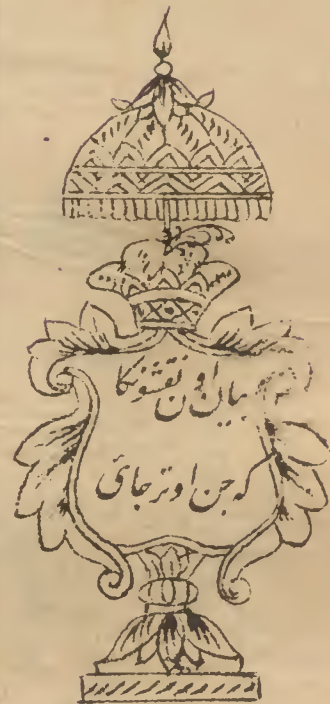 بیان اون نقشونکا
کہ جن اوتر جائی